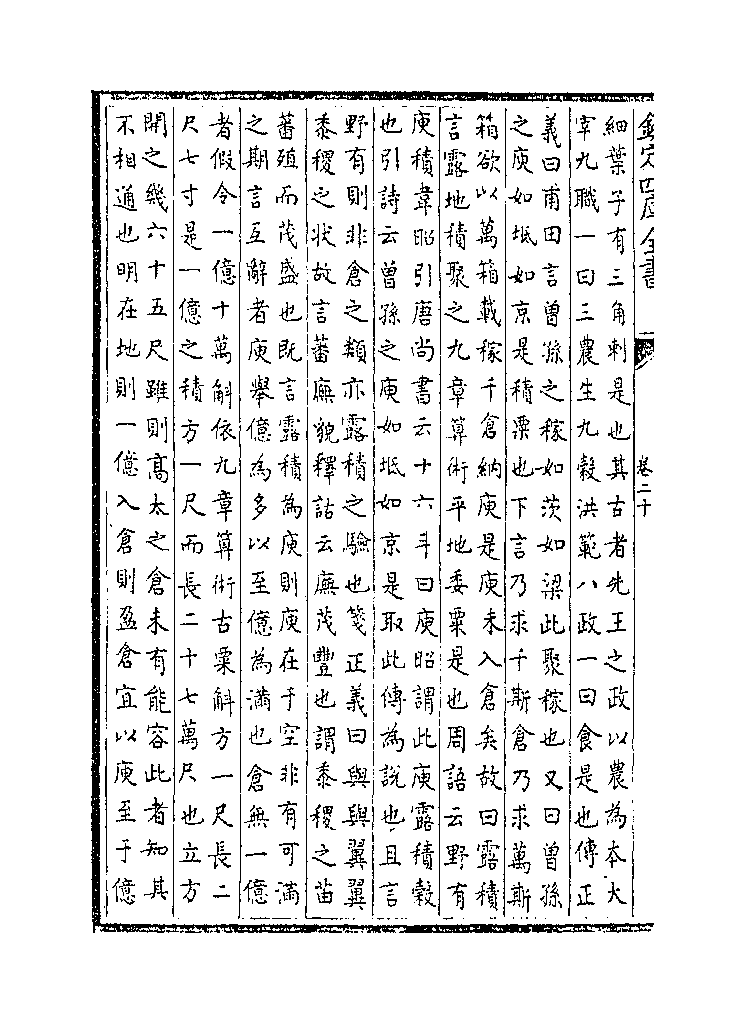 欽定四庫全書
卷二十
細葉子有三角刺是也其古者先王之政以農為本大
宰九職一曰三農生九穀洪範八政一曰食是也傳正
義曰甫田言曽孫之稼如茨如梁此聚稼也又曰曽孫
之庾如坻如京是積粟也下言乃求千斯倉乃求萬斯
箱欲以萬箱載稼千倉納庾是庾未入倉矣故曰露積
言露地積聚之九章算術平地委粟是也周語云野有
庾積韋昭引唐尚書云十六斗曰庾昭謂此庾露積穀
也引詩云曽孫之庾如坻如京是取此傳為說也且言
野有則非倉之類亦露積之驗也箋正義曰與與翼翼
黍稷之状故言蕃廡貌釋詁云廡茂豐也謂黍稷之苗
蕃殖而茂盛也既言露積為庾則庾在于空非有可滿
之期言互辭者庾舉億為多以至億為滿也倉無一億
者假令一億十萬斛依九章算術古粟斛方一尺長二
尺七寸是一億之積方一尺而長二十七萬尺也立方
開之幾六十五尺雖則髙太之倉未有能容此者知其
不相通也明在地則一億入倉則盈倉宜以庾至于億